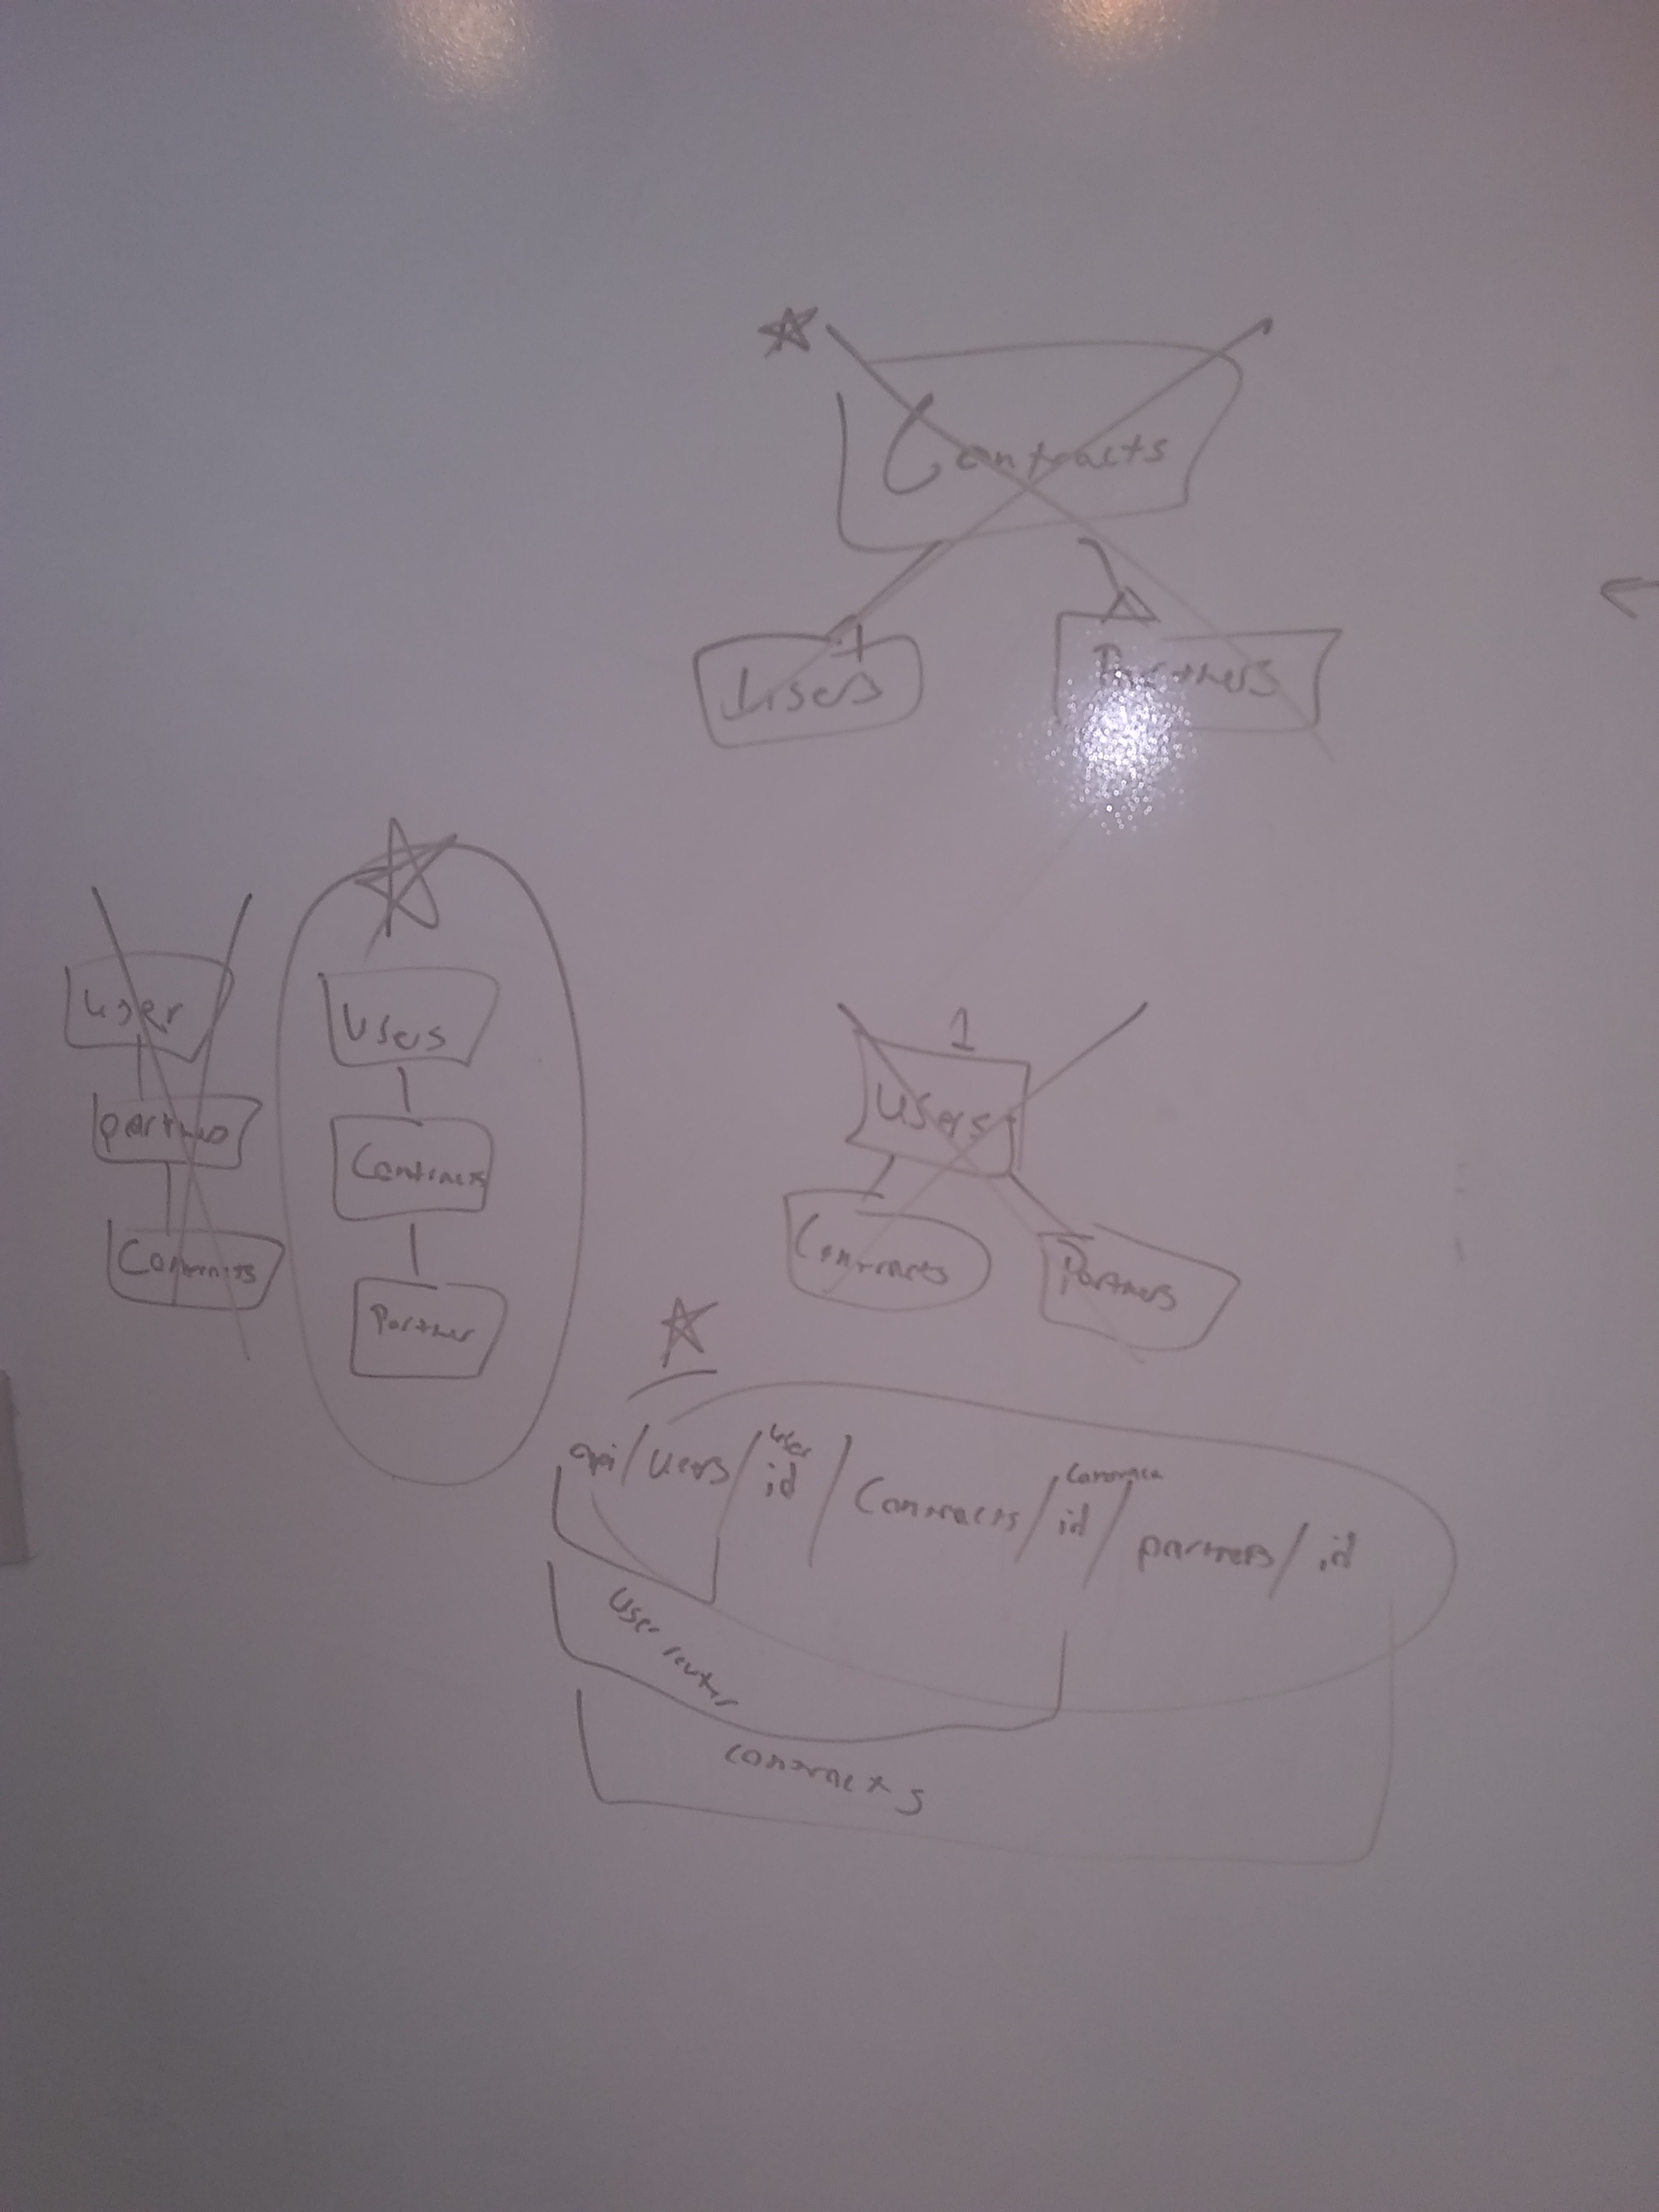 Contracts
Users
Partners
User
partners
Contracts
Users
Contracts
Partner
1
Users
Contracts
Partners
api/users/user id/Contracts/contract id/partners/id
User routes
contracts